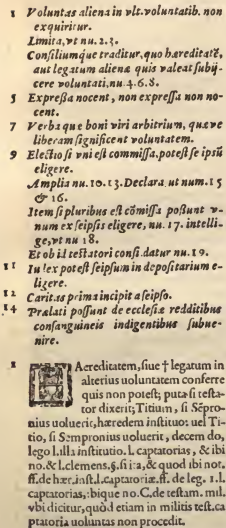 1 Voluntas aliena in vlt. voluntatib. non
exquiritur.
Limita, vt nu. 2. 3.
Consiliumque traditur, quo hæreditatē,
aut legatum alienę quis valeat subij-
cere voluntati, nu. 4. 6. 8.
5 Expreßa nocent, non expreſſa non no-
cent.
7 Verba quę boni viri arbitrium, quęve
liberam significent voluntatem.
9 Electio si vni est commissa, potest se ipsū
eligere.
Amplia nu. 10. 13. Declara, ut num. 15
& 16.
Item si pluribus est cōmissa poßunt v-
num ex seipsis eligere, nu. 17. intelli-
ge, vt nu 18.
Et ob id testatori consi. datur nu. 19.
11 Iudex potest seipsum in depositarium e-
ligere.
12 Caritas prima incipit a seipso.
14 Prælati possunt de ecclesiæ redditibus
consanguineis indigentibus subue-
nire.
1 HAereditatem, siue † legatum in
alterius uoluntatem conferre
quis non potest; puta si testa-
tor dixerit; Titium, si Sēpro-
nius uoluerit, hæredem instituo: uel Ti-
tio, si Sempronius uoluerit, decem do,
lego l. illa institutio. l. captatorias, & ibi
no. & l. clemens. §. si: a, & quod ibi not.
ff. de hær. inst. l. captatoriæ. ff. de leg. 1. l.
captatorias: bique no. C. de testam. mil.
vbi dicitur, quòd etiam in militis test. ca
ptatoria uoluntas non procedit.